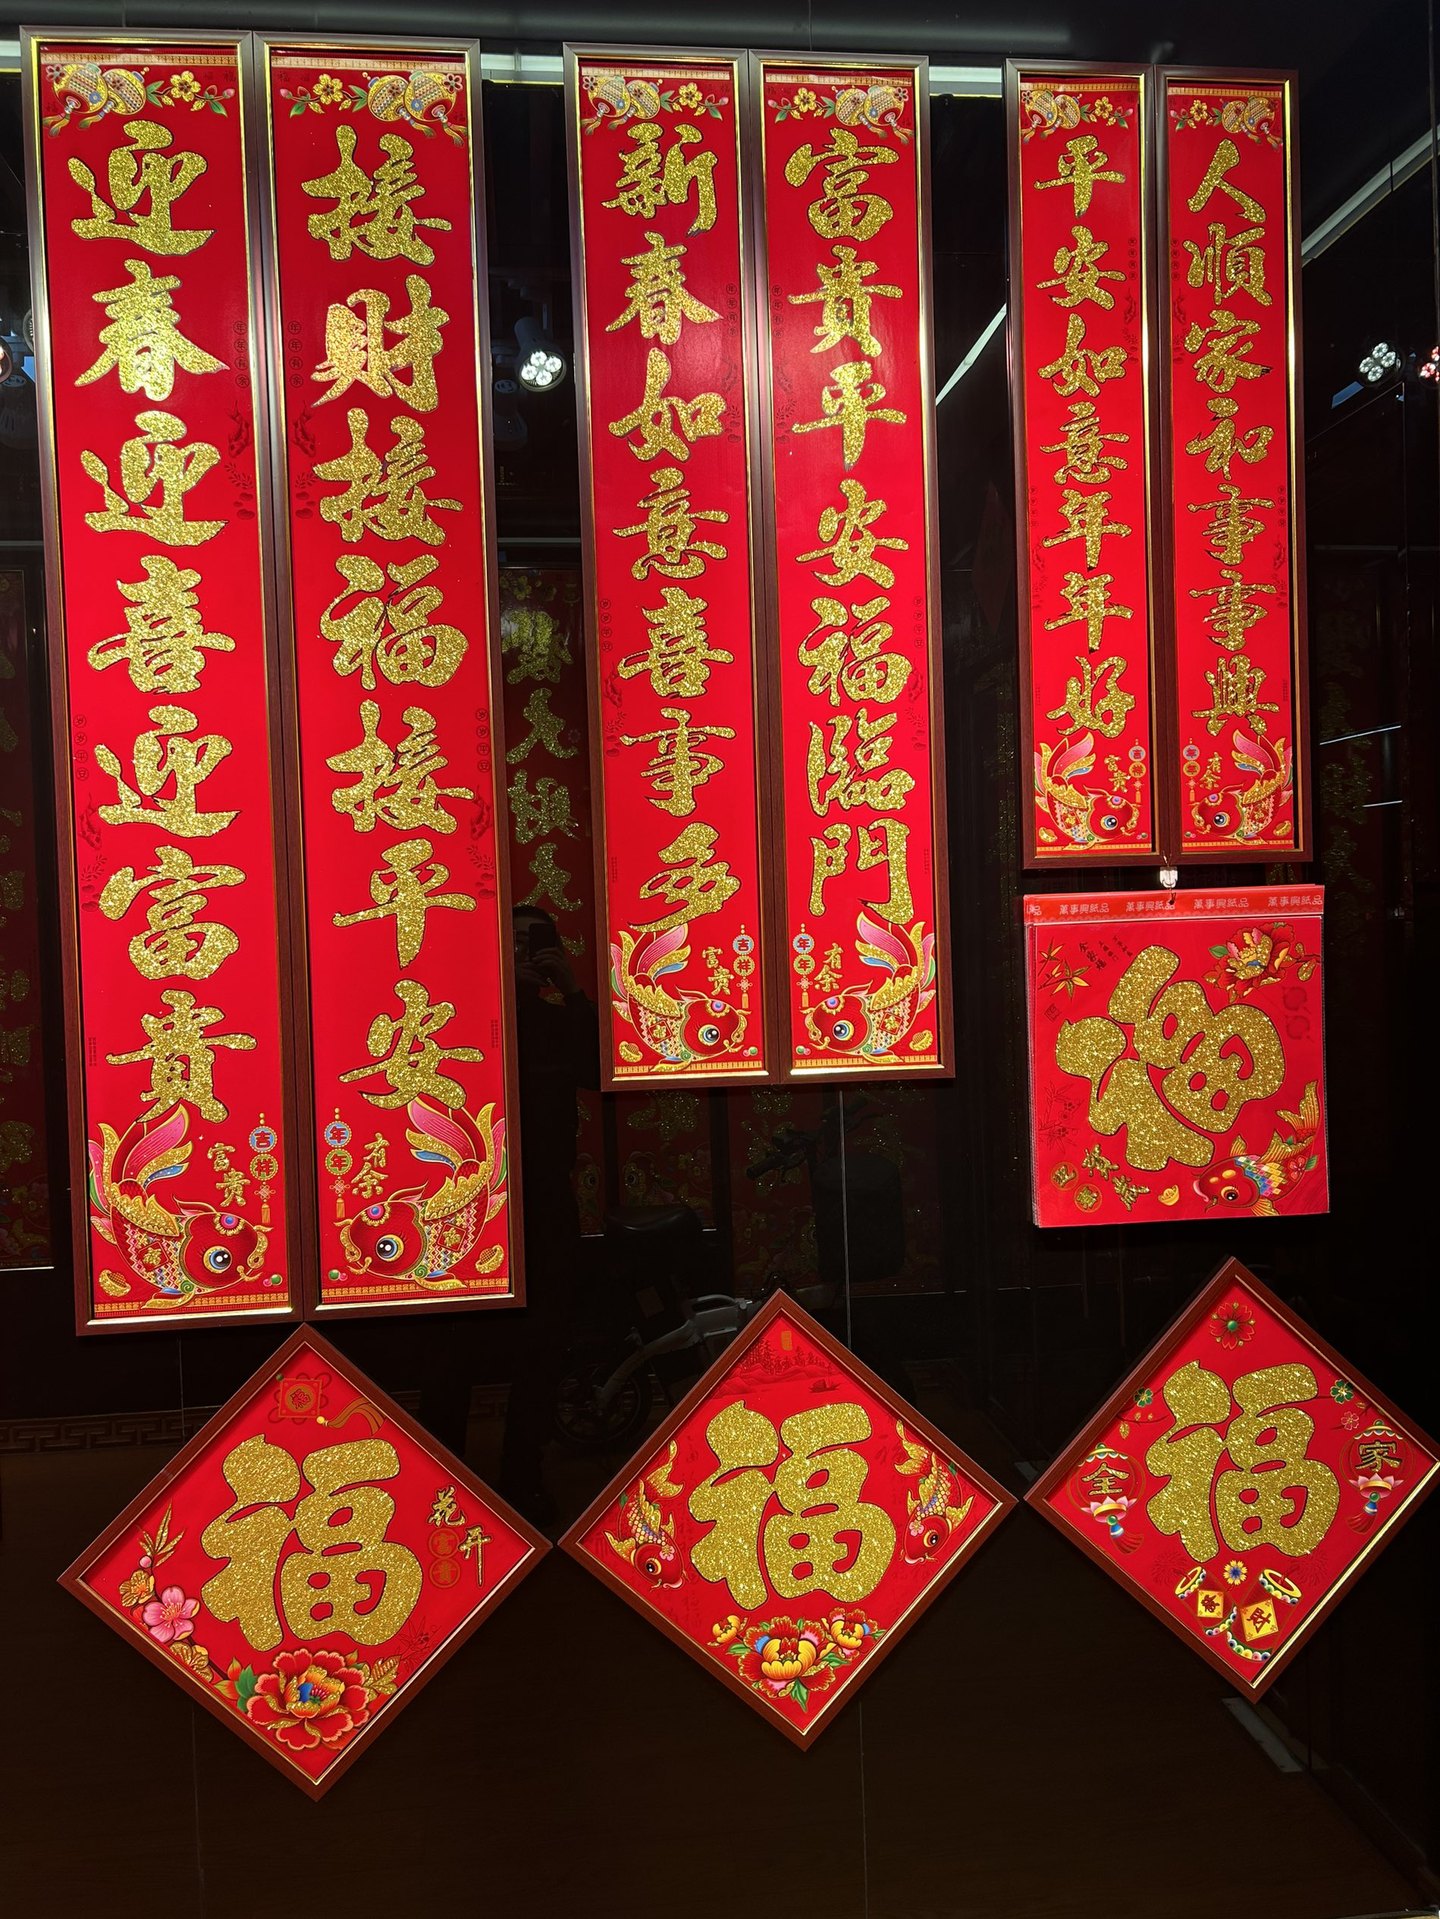 迎春迎喜迎富貴
接財接福接平安
新春如意喜事多
富貴平安福臨門
平安如意年年好
人順家和事事興
富貴
吉祥
年年
有余
富貴
吉祥
年年
有余
富貴
吉祥
年年
有余
萬事興紙品 萬事興紙品 萬事興紙品
福
福
花开
富貴
福
福
全
家